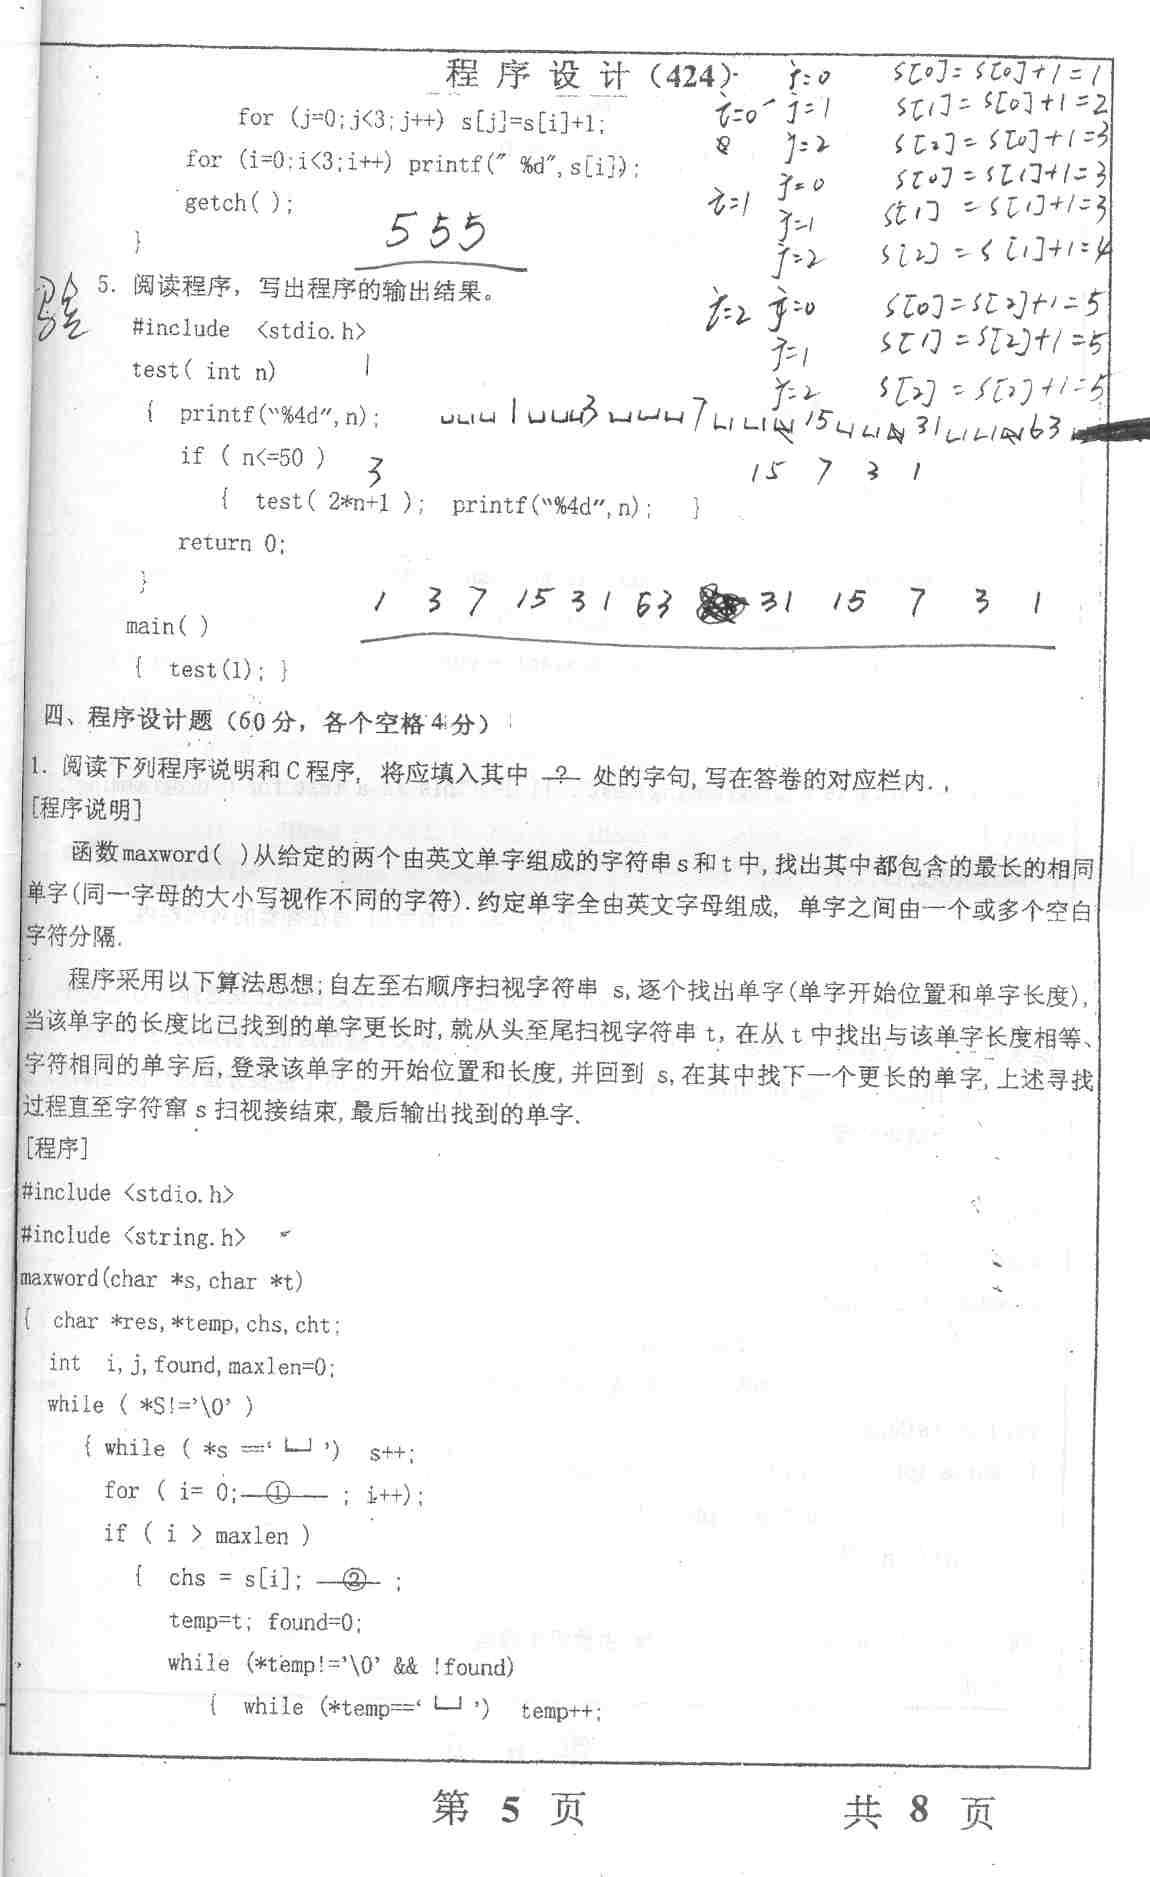 程 序 设 计 (424)
for (j=0;j<3;j++) s[j]=s[i]+1;
for (i=0;i<3;i++) printf(" %d",s[i]);
getch( );
}
555
i=0 j=0 s[0]=s[0]+1=1
j=1 s[1]=s[0]+1=2
j=2 s[2]=s[0]+1=3
i=1 j=0 s[0]=s[1]+1=3
j=1 s[1]=s[1]+1=3
j=2 s[2]=s[1]+1=4
i=2 j=0 s[0]=s[2]+1=5
j=1 s[1]=s[2]+1=5
j=2 s[2]=s[2]+1=5
5. 阅读程序，写出程序的输出结果。
#include <stdio.h>
test( int n) 1
{ printf("%4d",n);
␣␣␣1␣␣␣3␣␣␣7␣␣15␣␣31␣␣63
if ( n<=50 ) 3
15 7 3 1
{ test( 2*n+1 ); printf("%4d",n); }
return 0;
}
1 3 7 15 31 63 31 15 7 3 1
main( )
{ test(1); }
四、程序设计题（60 分，各个空格 4 分）
1. 阅读下列程序说明和 C 程序, 将应填入其中 ? 处的字句, 写在答卷的对应栏内.
[程序说明]
函数 maxword( )从给定的两个由英文单字组成的字符串 s 和 t 中, 找出其中都包含的最长的相同
单字(同一字母的大小写视作不同的字符). 约定单字全由英文字母组成, 单字之间由一个或多个空白
字符分隔.
程序采用以下算法思想; 自左至右顺序扫视字符串 s, 逐个找出单字(单字开始位置和单字长度),
当该单字的长度比已找到的单字更长时, 就从头至尾扫视字符串 t, 在从 t 中找出与该单字长度相等、
字符相同的单字后, 登录该单字的开始位置和长度, 并回到 s, 在其中找下一个更长的单字, 上述寻找
过程直至字符窜 s 扫视接结束, 最后输出找到的单字.
[程序]
#include <stdio.h>
#include <string.h>
maxword(char *s, char *t)
{ char *res,*temp,chs,cht;
int i,j,found,maxlen=0;
while ( *S!='\0' )
{ while ( *s ==' ␣ ') s++;
for ( i= 0; ① ; i++);
if ( i > maxlen )
{ chs = s[i]; ② ;
temp=t; found=0;
while (*temp!='\0' && !found)
{ while (*temp==' ␣ ') temp++;
第 5 页 共 8 页